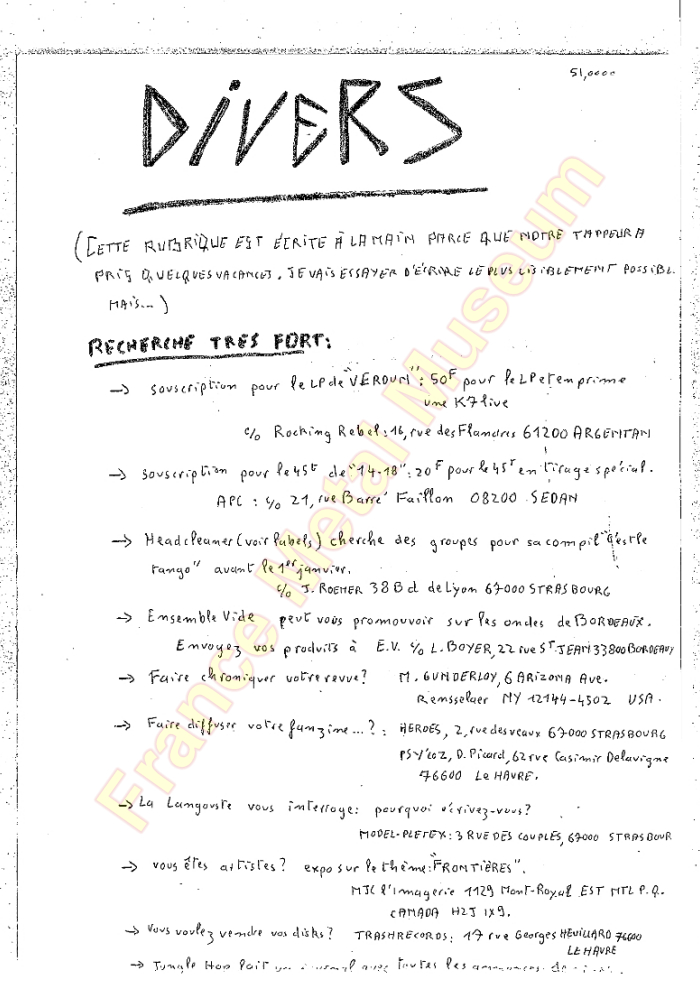 51,0000
DIVERS
(CETTE RUBRIQUE EST ÉCRITE À LA MAIN PARCE QUE NOTRE TAPPEUR A
PRIS QUELQUES VACANCES. JE VAIS ESSAYER D'ÉCRIRE LE PLUS LISIBLEMENT POSSIBL
MAIS...)
RECHERCHE TRES FORT:
→ souscription pour le LP de "VERDUN": 50F pour le LP et en prime
une K7 live
c/o Rocking Rebel: 16, rue des Flandres 61200 ARGENTAN
→ souscription pour le 45t de "14-18": 20F pour le 45T en tirage spécial.
APC: c/o 21, rue Barré Faillon 08200 SEDAN
→ Headcleaner (voir labels) cherche des groupes pour sa compil "c'est le
tango" avant le 1er janvier.
c/o J. ROEHER 38 Bd de Lyon 67000 STRASBOURG
→ Ensemble Vide peut vous promouvoir sur les ondes de BORDEAUX.
Envoyez vos produits à E.V. c/o L. BOYER, 22 rue ST JEAN 33800 BORDEAUX
→ Faire chroniquer votre revue? M. GUNDERLOY, 6 ARIZONA Ave.
Rensselaer NY 12144-4502 USA.
→ Faire diffuser votre fanzine...?: HEROES, 2, rue des veaux 67000 STRASBOURG
PSY'COZ, D. Picard, 62 rue Casimir Delavigne
76600 LE HAVRE.
→ La Langouste vous interroge: pourquoi écrivez-vous?
MODEL-PLETEX: 3 RUE DES COUPLES, 67000 STRASBOUR
→ vous êtes artistes? expo sur le thème: "FRONTIÈRES".
MJC l'Imagerie 1129 Mont-Royal EST MTL P.Q.
CANADA H2J 1X9.
→ Vous voulez vendre vos disks? TRASHRECORDS: 17 rue Georges HEUILLARD 76600
LE HAVRE
→ Jungle Hop fait un journal avec toutes les annonces de
France Metal Museum